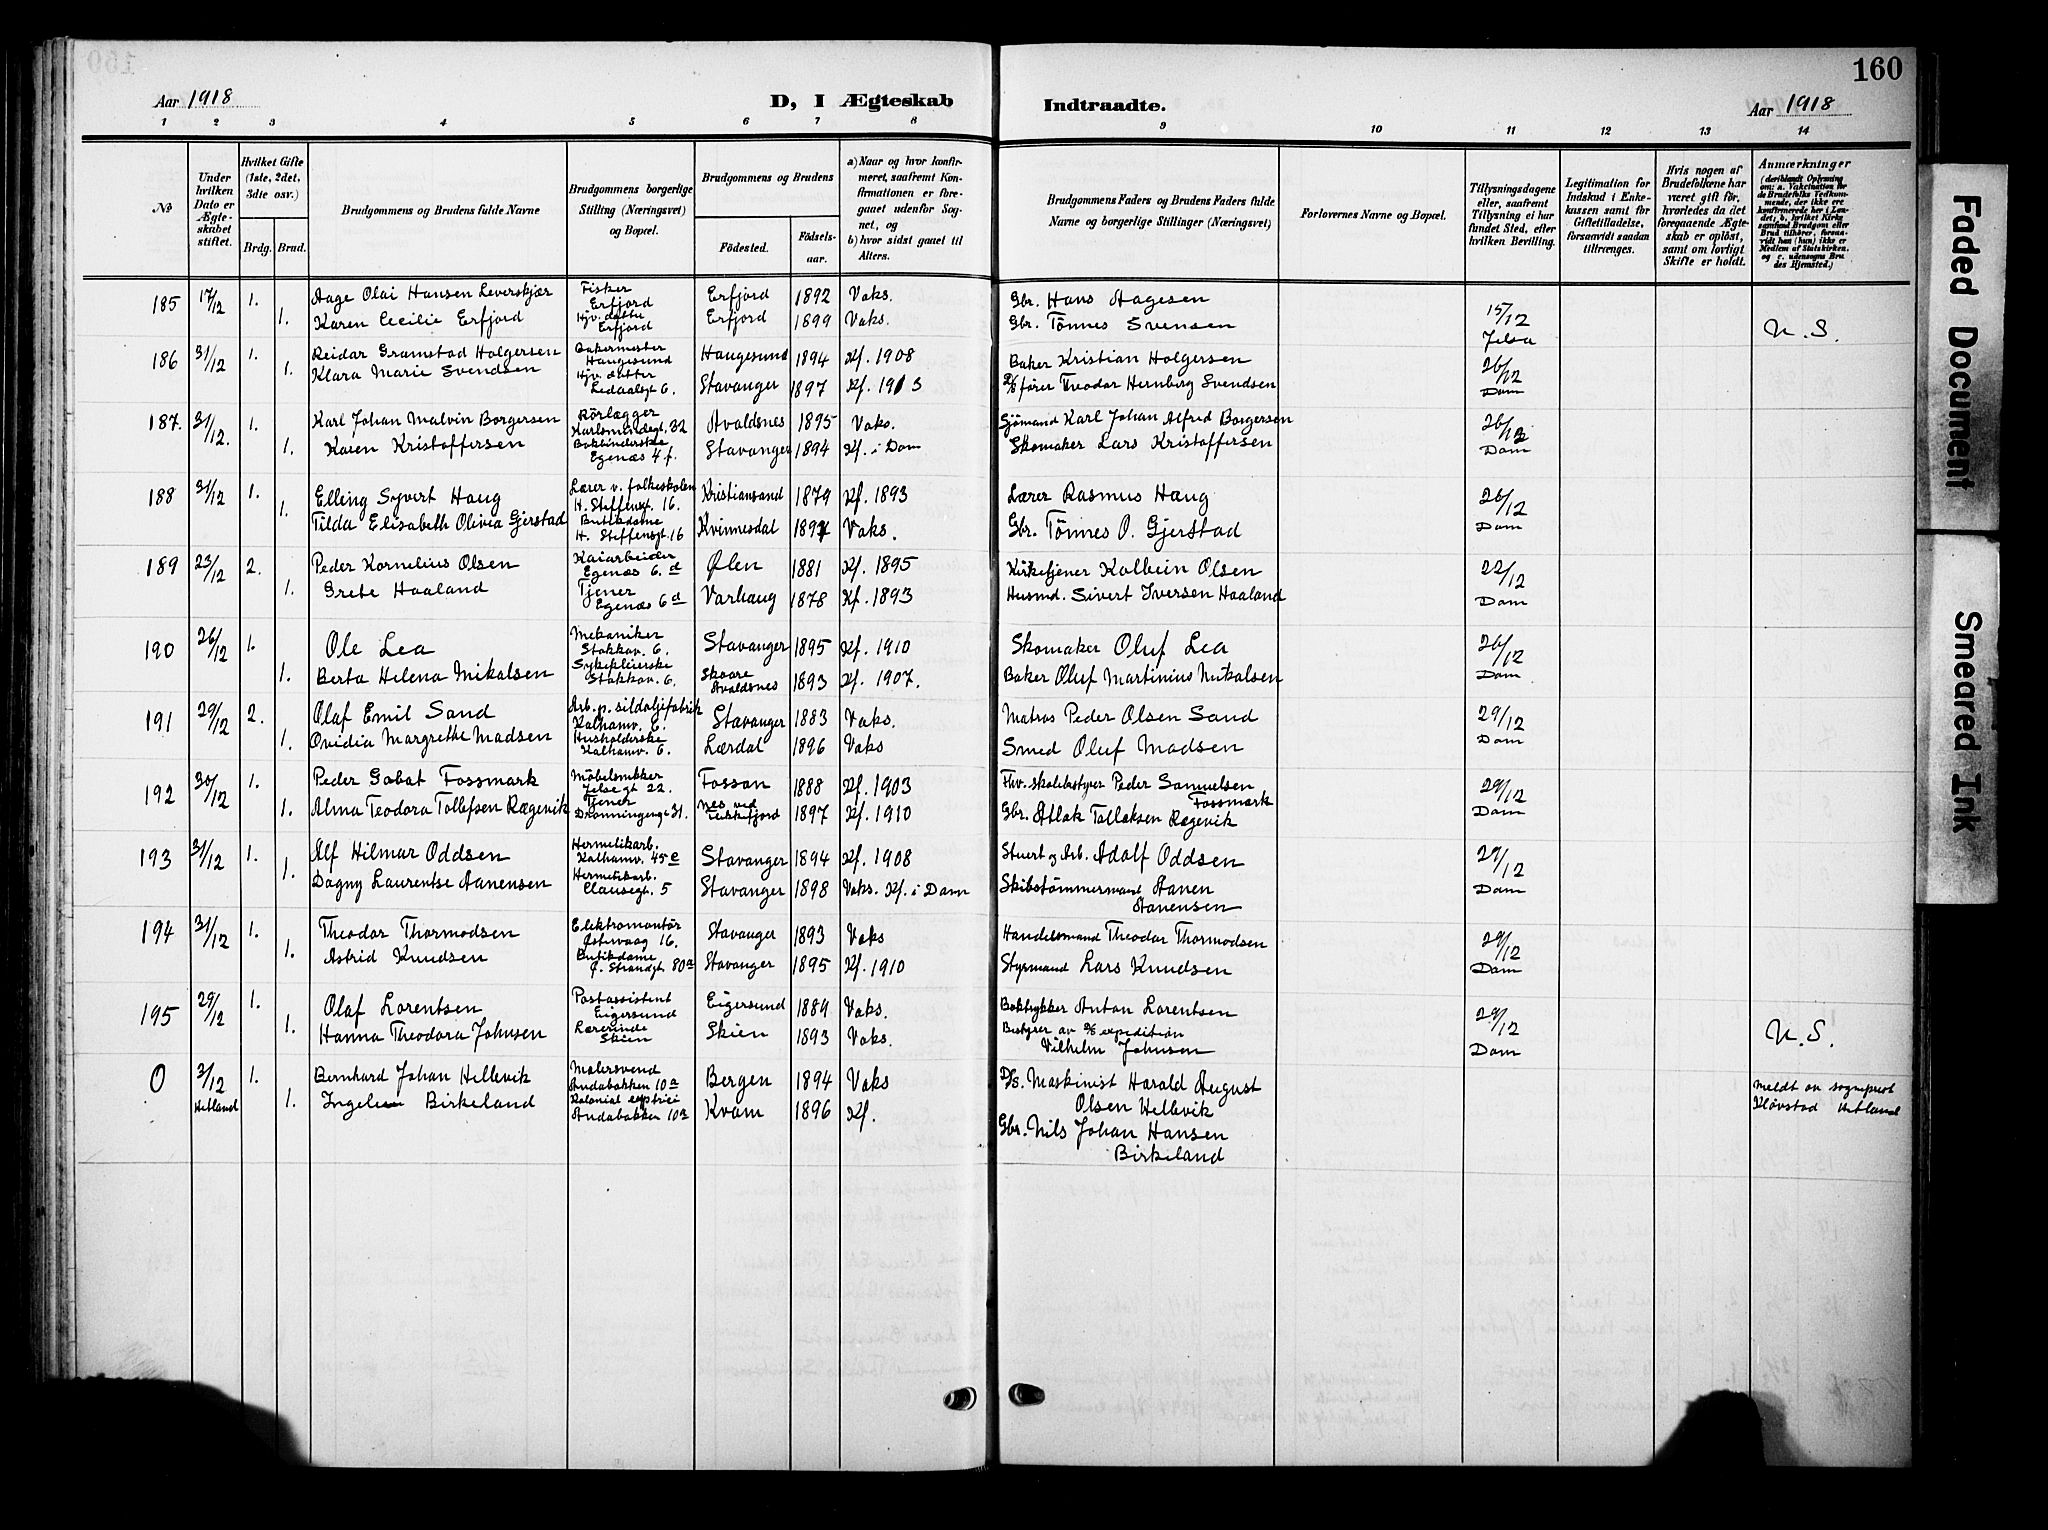 160
Aar 1918
D, I Ægteskab
Indtraadte.
Aar 1918
1 2 3 4 5 6 7 8 9 10 11 12 13 14
No
Under hvilken Dato er Ægteskabet stiftet.
Hvilket Gifte (1ste, 2det, 3die osv.)
Brdg. Brud.
Brudgommens og Brudens fulde Navne
Brudgommens borgerlige Stilling (Næringsvei) og Bopæl.
Brudgommens og Brudens
Fødested. Fødsels-aar.
a) Naar og hvor konfirmeret, saafremt Konfirmationen er foregaaet udenfor Sognet, og
b) hvor sidst gaaet til Alters.
Brudgommens Faders og Brudens Faders fulde Navne og borgerlige Stillinger (Næringsvei)
Forlovernes Navne og Bopæl.
Tillysningsdagene eller, saafremt Tillysning ei har fundet Sted, efter hvilken Bevilling.
Legitimation for Indskud i Enkekassen samt for Giftetilladelse, forsaavidt saadan tiltrænges.
Hvis nogen af Brudefolkene har været gift før, hvorledes da det foregaaende Ægteskab er opløst, samt om lovligt Skifte er holdt.
Anmærkninger
(deriblandt Oplysning om: a. Vakcination for de Brudefolks Vedkommende, der ikke ere konfirmerede her i Landet; b. hvilket Kirkesamfund Brudgom eller Brud tilhører, forsaavidt han (hun) ikke er Medlem af Statskirken, og c. udensogns Brudes Hjemsted.)
185 17/12 1. Aage Olai Hansen Leverskjær Fisker Erfjord Erfjord 1892 Vaks. Gbr. Hans Aagesen 15/12 Jelsa
1. Karen Cecilie Erfjord Gjv. datter Erfjord Erfjord 1899 Vaks. Gbr. Tønnes Svensen U. S.
186 31/12 1. Reidar Gramstad Holgersen Bakermester Haugesund Haugesund 1894 Kf. 1908 Baker Kristian Holgersen 26/12 Dom
1. Klara Marie Svendsen Hjv. datter Ledaalsgt 6. Stavanger 1897 Kf. 1913 D/S fører Teodor Hernberg Svendsen
187. 31/12. 1. Karl Johan Malvin Borgersen Rörlægger Karlsmindegt. 32 Avaldsnes 1895 Vaks. Sjømand Karl Johan Alfred Borgersen 26/12 Dom
1. Karen Kristoffersen Bokbinderske Egenæs 4 f. Stavanger 1894 Kf. i Dom Skomaker Lars Kristoffersen
188 31/12 1. Elling Syvert Haug Lærer v. folkeskolen H. Steffensgt. 16. Kristiansand 1879 Kf. 1893 Lærer Rasmus Haug 26/12 Dom
1. Tilda Elisabeth Olivia Gjerstad Butikdame H. Steffensgt. 16 Kvinnesdal 1894 Vaks. Gbr. Tønnes O. Gjerstad
189 23/12 2. Peder Kornelius Olsen Kaiarbeider Egenæs 6. d Ølen 1881 Kf. 1895 Kirketjener Kolbein Olsen 22/12 Dom
1. Grete Haaland Tjener Egenæs 6 d Varhaug 1878 Kf. 1893 Husmd. Sivert Iversen Haaland
190 26/12 1. Ole Lea Mekaniker Stokkav. 6. Stavanger 1895 Kf. 1910 Skomaker Oluf Lea 26/12 Dom
1. Berta Helena Mikalsen Sykepleierske Stokkav. 6. Skaare Avaldsnes 1893 Kf. 1907. Baker Oluf Martinius Mikalsen
191 29/12 2. Olaf Emil Sand Arb. p. sildoljefabrik Kalhamv. 6. Stavanger 1883 Vaks. Matros Peder Olsen Sand 29/12 Dom
1. Ovidia Margrethe Madsen Husholderske Kalhamv. 6. Lærdal 1896 Vaks Smed Oluf Madsen
192 30/12 1. Peder Gabat Fossmark Möbelsnekker Jelsegt 22. Fossan 1888 Kf. 1903 Fhv. skolebestyrer Peder Samuelsen Fossmark 29/12 Dom
1. Alma Teodora Tollefsen Rægevik Tjener Dronningengt 31. Nes ved Flekkefjord 1897 Kf. 1910 Gbr. Atlak Tollaksen Rægevik
193 31/12 1. Alf Hilmar Oddsen Hermetikarb. Kalhamv. 45 e Stavanger 1894 Kf. 1908 Stuert og Arb. Adolf Oddsen 29/12 Dom
1. Dagny Laurentse Aanensen Hermetikarb. Clausegt. 5 Stavanger 1898 Vaks. Kf. i Dom Skibstømmermand Aanen Aanensen
194 31/12 1. Theodor Thormodsen Elektromontør Østervaag 16. Stavanger 1893 Vaks Handelsmand Theodor Thormodsen 29/12 Dom
1. Astrid Knudsen Butikdame Ø. Strandgt. 80 a Stavanger 1895 Kf. 1910 Styrmand Lars Knudsen
195 29/12 1. Olaf Lorentsen Postassistent Eigersund Eigersund 1889 Vaks. Boktrykker Anton Lorentsen 29/12 Dom
1. Hanna Theodora Johnsen Lærerinde Skien Skien 1893 Vaks. Bestyrer av D/S expedition Vilhelm Johnsen U. S.
0 3/12 Hetland 1. Bernhard Johan Hellevik Malersvend Andabakken 10 a Bergen 1894 Vaks D/S. Maskinist Harald August Olsen Hellevik Meldt av sogneprest Kløvstad Hetland
1. Ingeleiv Birkeland Kolonial Andabakken 10 a Kvam 1896 Kf. Gbr. Nils Johan Hansen Birkeland
Faded Document
Smeared Ink